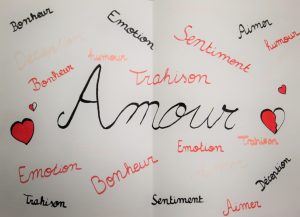 Bonheur
Emotion
Aimer
Sentiment
humour
Déception
humour
Bonheur
Trahison
Amour
Emotion
Trahison
Emotion
Bonheur
Déception
Trahison
Sentiment
Aimer